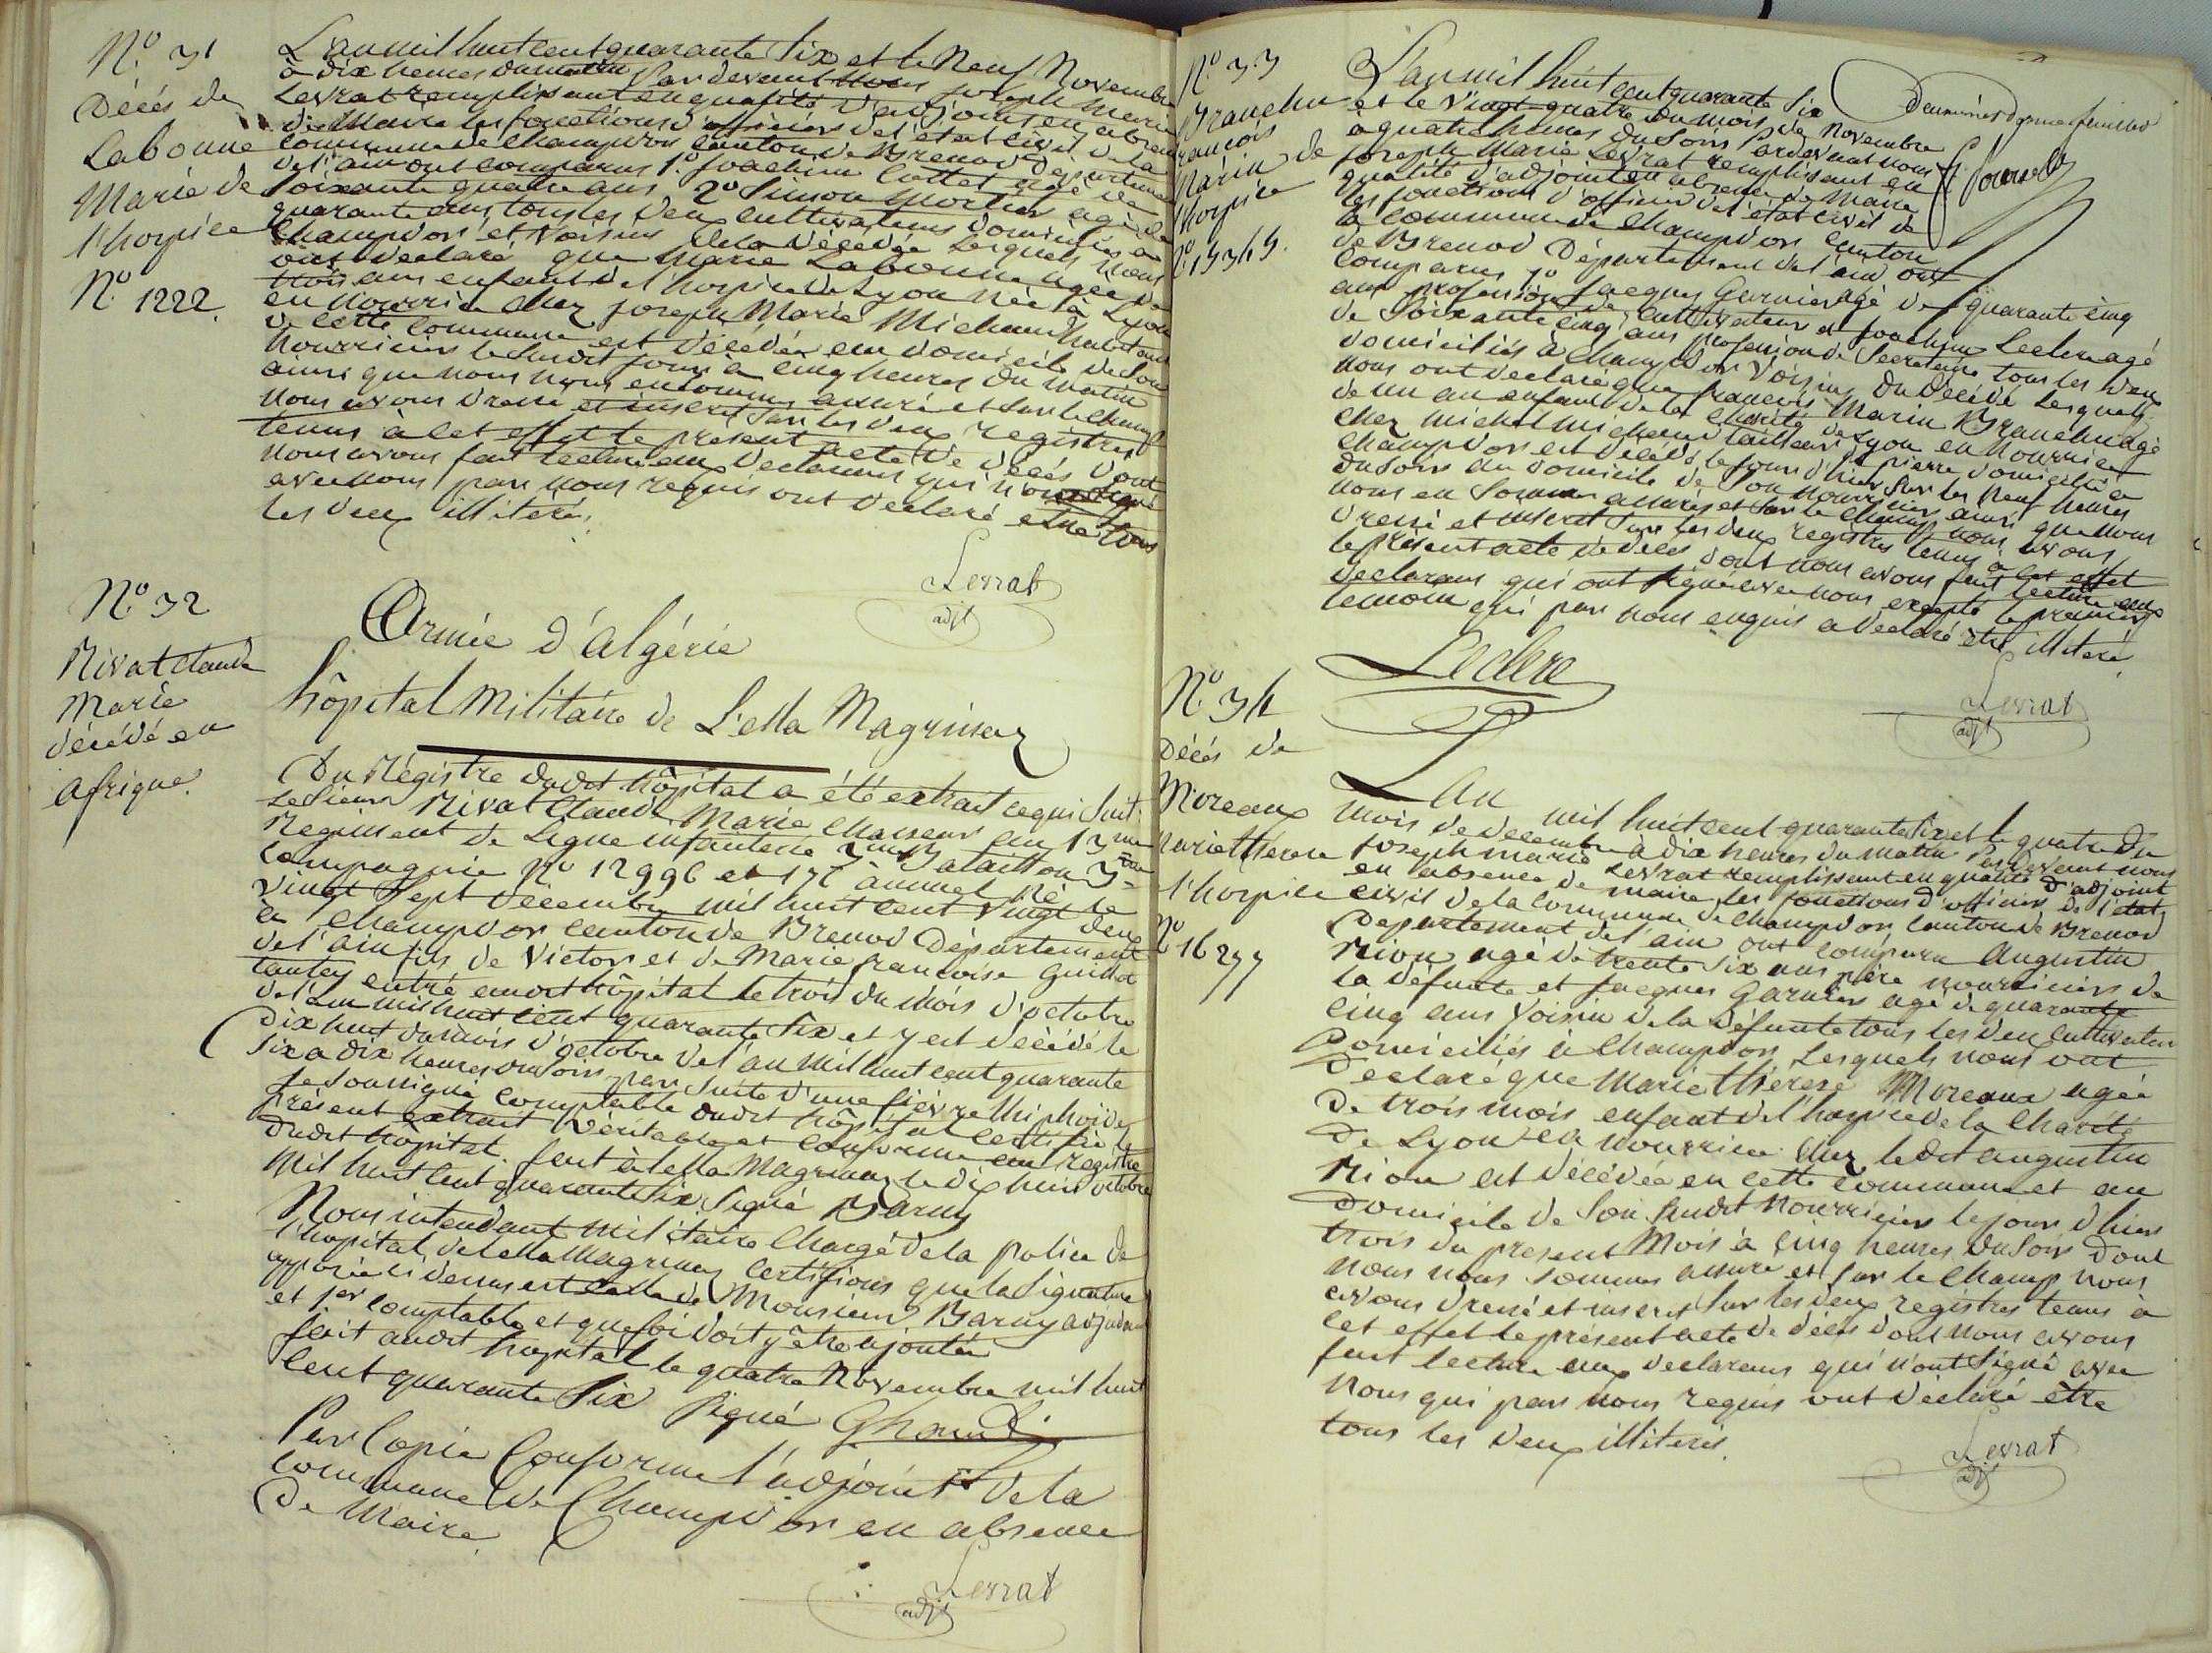 N.º 31
Décés de
Labonne
Marie de
l'hospice
N.º 1222.
L'an mil huit cent quarante Six et le Neuf Novembre
à dix heures du matin Par devant nous joseph Marie
Levrat remplissant en qualité d'adjoint en absence
de Maire les fonctions d'officier de l'état civil de la
commune de Champdor canton de Brenod département
de l'ain ont comparus 1.º joachim Collet agé de
Soixante quatre ans 2º Simon Mortier agé de
quarante ans, tous les deux cultivateurs domiciliés à
Champdor et voisins de la décédée Lesquels nous
ont déclaré que Marie Labonne agée de
trois ans enfant de l'hospice de Lyon née à Lyon
en nourrice chez joseph Marie Michaud habitant
de cette commune est décédée au domicile de Son
nourricier le susdit jour à cinq heures du matin
ainsi que nous nous en sommes assuré et sur le champ
nous avons dressé et inscrit Sur les deux registres
tenus à cet effet le présent acte de décés dont
nous avons fait lecture aux declarans qui n'ont signé
avec nous par nous requis ont déclaré etre tous
les deux illiterés.
Levrat
adjt
N.º 32
Nivat Claude
Marie
décédé en
afrique.
Armée d'algérie
hôpital Militaire de Lella Magrinez
Du Régistre dudit hôpital a été extrait ce qui suit.
Le Sieur Nivat Claude Marie Chasseur au 13me
Regiment de Ligne infanterie 3me Bataillon 3me
Compagnie Nº 12996 et 176 annuel né le
vingt Sept décembre mil huit cent vingt deux
à Champdor canton de Brenod Département
de l'ain fils de Victor et de Marie francoise Guillot
tantey entré audit hôpital le trois du mois d'octobre
de l'an mil huit cent quarante Six et y est décédé le
dix huit du mois d'octobre de l'an mil huit cent quarante
Six a dix heures du Soir par Suite d'une fièvre thiphoïde
Je Soussigné comptable dudit hôpital certifie le
présent extrait véritable et conforme au registre
dudit hôpital. fait à lella Magrinez le dix huit octobre
mil huit cent quarante Six. Signé Barny
Nous intendant militaire Chargé de la police de
l'hopital de lella Magrinez certifions que la Signature
apposée ci dessus est celle de Monsieur Barny adjudant
et 1er comptable et que foi doit y être ajoutée
fait audit hopital le quatre Novembre mil huit
cent quarante Six Signé
Par Copie Conforme l'adjoint de la
commune de Champdor en absence
de Maire
Levrat
adjt
N.º 33
Branchu
francois
Marin de
l'hospice
Nº 15345.
L'an mil huit cent quarante Six
et le Vingt quatre du mois de Novembre
à quatre heures du Soir Pardevant nous
joseph Marie Levrat remplissant en
qualité d'adjoint en absence de Maire
les fonctions d'officier de l'état civil de
la commune de Champdor canton
de Brenod Département de l'ain ont
comparus 1º jacques Garnier agé de quarante cinq
ans profession de cultivateur et joachim Leclerc agé
de Soixante cinq ans profession de Secretaire tous les deux
domiciliés à Champdor voisins du décédé Lesquels
nous ont déclaré que francois Marin Branchu agé
de un an enfant de la Charité de Lyon en nourrice
chez michel michaud tailleur de pierre domicilié à
Champdor est décédé le jour d'hier sur les neuf heures
du Soir au domicile de Son nourricier ainsi que nous
nous en Sommes assurés et Sur le champ nous avons
dressé et inscrit Sur les deux registres tenus à cet effet
le présent acte de décés dont nous avons fait lecture aux
declarans qui ont signé avec nous excepté le premier
temoin qui par nous enquis a déclaré etre illiteré.
Leclerc
Levrat
adjt
N.º 34
Décés de
Moreaux
Marie thérese
l'hospice
Nº 16277
L'an mil huit cent quarante Six et le quatre du
mois de decembre à dix heures du matin Par devant nous
joseph marie Levrat remplissant en qualité d'adjoint
en absence de maire les fonctions d'officier de l'état
civil de la commune de Champdor canton de Brenod
Departement de l'ain ont comparu Augustin
Rion agé de trente Six ans père nourricier de
la défunte et jacques Garnier agé de quarante
cinq ans Voisin de la défunte tous les deux cultivateurs
Domiciliés à Champdor, Lesquels nous ont
Déclaré que Marie thérese Moreaux agée
De trois mois enfant de l'hospice de la Charité
De Lyon en nourrice chez ledit augustin
Rion est décédée en cette commune et au
Domicile de Son Susdit Nourricier le jour d'hier
trois du présent Mois à cinq heures du Soir dont
nous nous Sommes assuré et sur le champ nous
avons dressé et inscrit Sur les deux registres tenus à
cet effet le présent acte de décés dont nous avons
fait lecture aux declarans qui n'ont Signé avec
nous qui par nous requis ont déclaré être
tous les deux illiterés.
Levrat
adjt